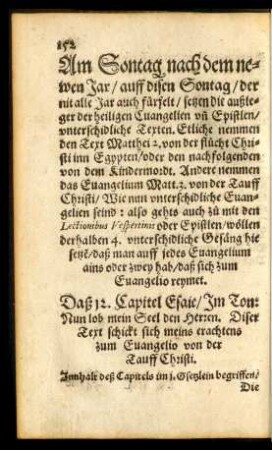 152
Am Sontag nach dem ne-
wen Jar / auff disen Sontag / der
nit alle Jar auch fürfelt / setzen die außle-
ger der heiligen Euangelien vñ Epistlen /
vnterschidliche Texten. Etliche nemmen
den Text Matthei 2. von der flucht Chri-
sti inn Egypten / oder den nachfolgenden
von dem Kindermordt. Andere nemmen
das Euangelium Matt. 3. von der Tauff
Christi / Wie nun vnterschidliche Euan-
gelien seind : also gehts auch zů mit den
Lectionibus Vespertinis oder Epistlen / wöllen
derhalben 4. vnterschidliche Gesäng hie
setzē / daß man auff jedes Euangelium
ains oder zwey hab / daß sich zum
Euangelio reymet.
Daß 12. Capitel Esaie / Im Ton:
Nun lob mein Seel den Herren. Diser
Text schickt sich meins erachtens
zum Euangelio von der
Tauff Christi.
Innhalt deß Capitels im 1. Gsetzlein begriffen /
Die